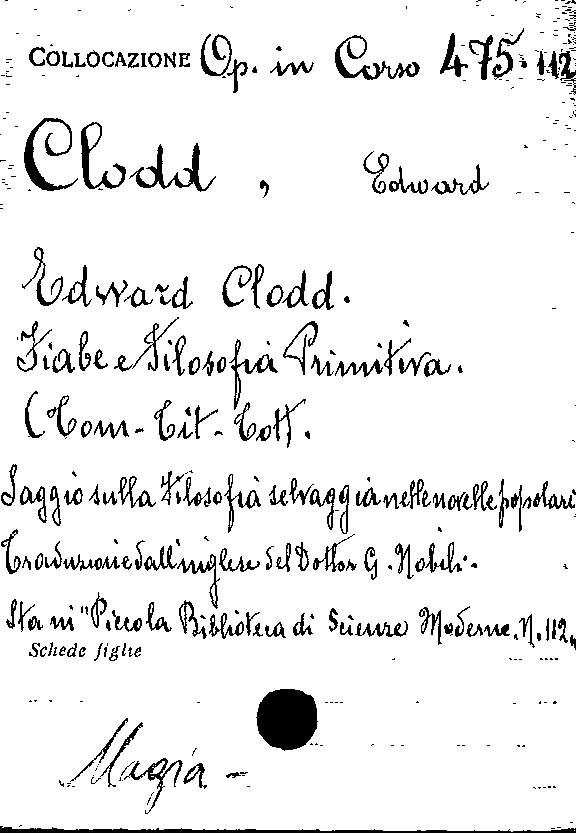 COLLOCAZIONE Op. in Corso 475.112
Clodd, Edward
Edward Clodd.
Fiabe e Filosofia Primitiva.
(Tom-Tit-Tott.
Saggio sulla Filosofia selvaggia nelle novelle popolari
Traduzione dall'inglese del Dottor G. Nobili.
Sta in "Piccola Biblioteca di Scienze Moderne. N. 112"
Schede figlie
Magia -